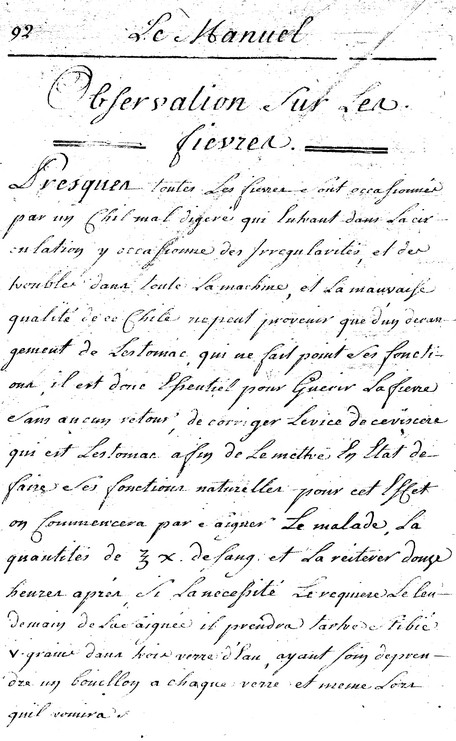 92 Le Manuel
Observation Sur Les
fievres.
Presques toutes Les fievres sont occasionnées
par un Chil mal digeré qui Entrant dans La cir
culation y occasionne des Irregularités, et des
troubles dans toute La machine, et La mauvaise
qualité de ce Chele ne peut provenir que d'un deran-
gement de Lestomac, qui ne fait point Ses foncti-
ons, il est donc Essentiel pour Guerir La fievre
Sans aucun retour, de corriger Levice de ce viscere
qui est Lestomac afin de Le mettre En Etat de
faire Ses fonctions naturelles pour cet Effet
on Commencera par Saigner Le malade, La
quantités de ℥ x. de Sang. et La réiterer douze
heures aprés, Si La necessité Le requiere Le len-
demain de La Saignée il prendra tartre Stibié
v. grains dans trois verre d'Eau, ayant Soin de pren-
dre un bouillon a chaque verre et meme Lors
quil vomira